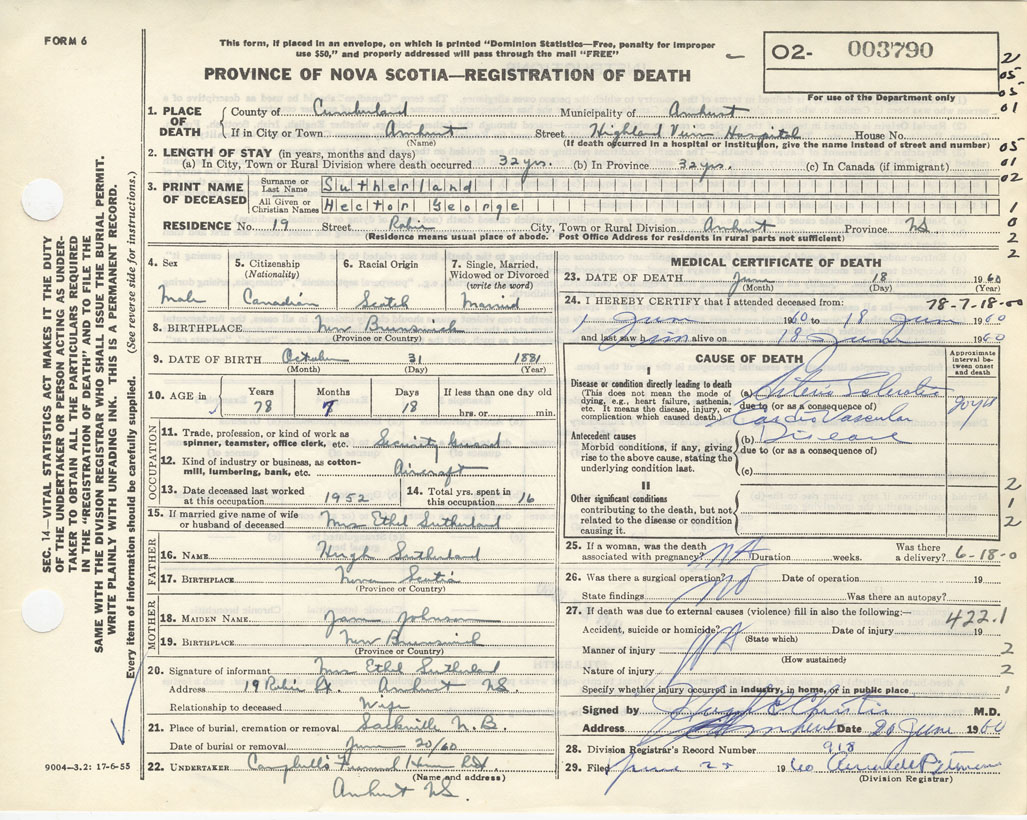 FORM 6
This form, if placed in an envelope, on which is printed "Dominion Statistics—Free, penalty for improper
use $50," and properly addressed will pass through the mail "FREE"
PROVINCE OF NOVA SCOTIA—REGISTRATION OF DEATH
O2- 003790
For use of the Department only
2
05
05
01
05
01
02
1
0
2
2
1. PLACE OF DEATH County of Cumberland Municipality of Amherst
If in City or Town Amherst Street Highland View Hospital House No.
(Name) (If death occurred in a hospital or institution, give the name instead of street and number)
2. LENGTH OF STAY (in years, months and days)
(a) In City, Town or Rural Division where death occurred 32 yrs. (b) In Province 32 yrs. (c) In Canada (if immigrant)
3. PRINT NAME OF DECEASED Surname or Last Name Sutherland
All Given or Christian Names Hector George
RESIDENCE No. 19 Street Robie City, Town or Rural Division Amherst Province NS
(Residence means usual place of abode. Post Office Address for residents in rural parts not sufficient)
4. Sex Male
5. Citizenship (Nationality) Canadian
6. Racial Origin Scotch
7. Single, Married, Widowed or Divorced (write the word) Married
8. BIRTHPLACE New Brunswick
(Province or Country)
9. DATE OF BIRTH October 31 1881
(Month) (Day) (Year)
10. AGE in Years 78 Months 7 Days 18 If less than one day old hrs. or min.
OCCUPATION
11. Trade, profession, or kind of work as spinner, teamster, office clerk, etc. Security Guard
12. Kind of industry or business, as cotton-mill, lumbering, bank, etc. Aircraft
13. Date deceased last worked at this occupation 1952
14. Total yrs. spent in this occupation 16
15. If married give name of wife or husband of deceased Mrs Ethel Sutherland
FATHER
16. NAME Hugh Sutherland
17. BIRTHPLACE Nova Scotia
(Province or Country)
MOTHER
18. MAIDEN NAME Jane Johnson
19. BIRTHPLACE New Brunswick
(Province or Country)
20. Signature of informant Mrs Ethel Sutherland
Address 19 Robie St. Amherst NS.
Relationship to deceased Wife
21. Place of burial, cremation or removal Sackville N.B.
Date of burial or removal June 20/60
22. UNDERTAKER Campbell's Funeral Home
(Name and address)
Amherst NS.
MEDICAL CERTIFICATE OF DEATH
23. DATE OF DEATH June 18 1960
(Month) (Day) (Year)
24. I HEREBY CERTIFY that I attended deceased from: 78-7-18-00
1 June 1960 to 18 June 1960
and last saw him alive on 18 June 1960
CAUSE OF DEATH
Approximate interval between onset and death
I
Disease or condition directly leading to death
(This does not mean the mode of dying, e.g., heart failure, asthenia, etc. It means the disease, injury, or complication which caused death.)
(a) Arterio Sclerotic
due to (or as a consequence of)
Cardio Vascular
Antecedent causes
Morbid conditions, if any, giving rise to the above cause, stating the underlying condition last.
(b) Disease
due to (or as a consequence of)
(c)
II
Other significant conditions contributing to the death, but not related to the disease or condition causing it.
2
1
2
25. If a woman, was the death associated with pregnancy? NA Duration weeks. Was there a delivery? 6-18-0
26. Was there a surgical operation? NO Date of operation 19
State findings Was there an autopsy?
27. If death was due to external causes (violence) fill in also the following:— 422.1
Accident, suicide or homicide? NA Date of injury 19
(State which)
Manner of injury 2
(How sustained)
Nature of injury 2
Specify whether injury occurred in industry, in home, or in public place 1
Signed by Christie M.D.
Address Amherst Date 20 June 1960
28. Division Registrar's Record Number 918
29. Filed June 1960
(Division Registrar)
SEC. 14—VITAL STATISTICS ACT MAKES IT THE DUTY
OF THE UNDERTAKER OR PERSON ACTING AS UNDER-
TAKER TO OBTAIN ALL THE PARTICULARS REQUIRED
IN THE "REGISTRATION OF DEATH" AND TO FILE THE
SAME WITH THE DIVISION REGISTRAR WHO SHALL ISSUE THE BURIAL PERMIT.
WRITE PLAINLY WITH UNFADING INK. THIS IS A PERMANENT RECORD.
Every item of information should be carefully supplied. (See reverse side for instructions.)
9004—3.2: 17-6-55